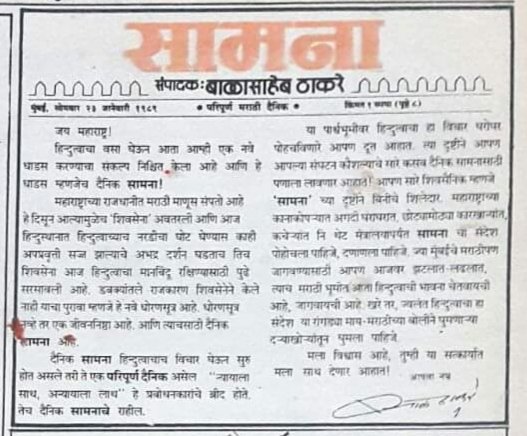 सामना
संपादक: बाळासाहेब ठाकरे
मुंबई, सोमवार २३ जानेवारी १९८९ • परिपूर्ण मराठी दैनिक • किंमत १ रुपया (पृष्ठे ८)
जय महाराष्ट्र!
हिन्दुत्वाचा वसा घेऊन आता आम्ही एक नवे
धाडस करण्याचा संकल्प निश्चित केला आहे आणि हे
धाडस म्हणजेच दैनिक सामना!
महाराष्ट्राच्या राजधानीत मराठी माणूस संपतो आहे
हे दिसून आल्यामुळेच 'शिवसेना' अवतरली आणि आज
हिन्दुस्थानात हिन्दुत्वाच्याच नरडीचा घोट घेण्यास काही
अपप्रवृत्ती सज्ज झाल्याचे अभद्र दर्शन घडताच तिच
शिवसेना आज हिन्दुत्वाचा मानबिंदू रक्षिण्यासाठी पुढे
सरसावली आहे. डबक्यांतले राजकारण शिवसेनेने केले
नाही याचा पुरावा म्हणजे हे नवे धोरणसूत्र आहे. धोरणसूत्र
नव्हे तर एक जीवननिष्ठा आहे. आणि त्याचसाठी दैनिक
सामना आहे.
दैनिक सामना हिन्दुत्वाचाच विचार घेऊन सुरु
होत असले तरी ते एक परिपूर्ण दैनिक असेल "न्यायाला
साथ, अन्यायाला लाथ" हे प्रबोधनकारांचे ब्रीद होते.
तेच दैनिक सामनाचे राहील.
या पार्श्वभूमीवर हिन्दुत्वाचा हा विचार घरोघर
पोहचविणारे आपण दूत आहात. त्या दृष्टीने आपण
आपल्या संघटन कौशल्याचे सारे कसब दैनिक सामनासाठी
पणाला लावणार आहात! आपण सारे शिवसैनिक म्हणजे
'सामना' च्या दृष्टीने बिनीचे शिलेदार. महाराष्ट्राच्या
कानाकोपऱ्यात अगदी घराघरांत, छोट्यामोठ्या कारखान्यांत,
कचेऱ्यांत नि थेट मंत्रालयापर्यंत सामना चा संदेश
पोहोचला पाहिजे, दणाणला पाहिजे. ज्या मुंबईचे मराठीपण
जागवण्यासाठी आपण आजवर झटलात-लढलात,
त्याच मराठी भूमीत आता हिन्दुत्वाची भावना चेतवायची
आहे, जागवायची आहे. खरे तर, ज्वलंत हिन्दुत्वाचा हा
संदेश या रांगड्या माय-मराठीच्या बोलीने घुमणाऱ्या
दऱ्याखोऱ्यांतून घुमला पाहिजे.
मला विश्वास आहे, तुम्ही या सत्कार्यात
मला साथ देणार आहात!
आपला नम्र